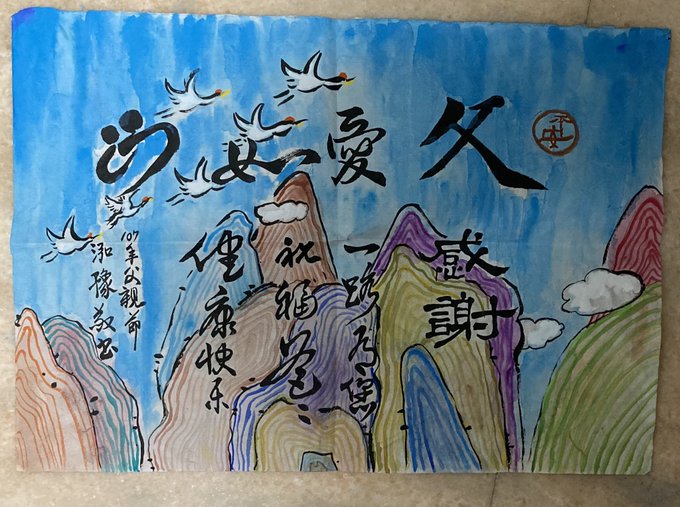 平安
父愛如山
感謝
一路有您
祝福爸〻
健康快乐
107年父親節
泓豫敬書